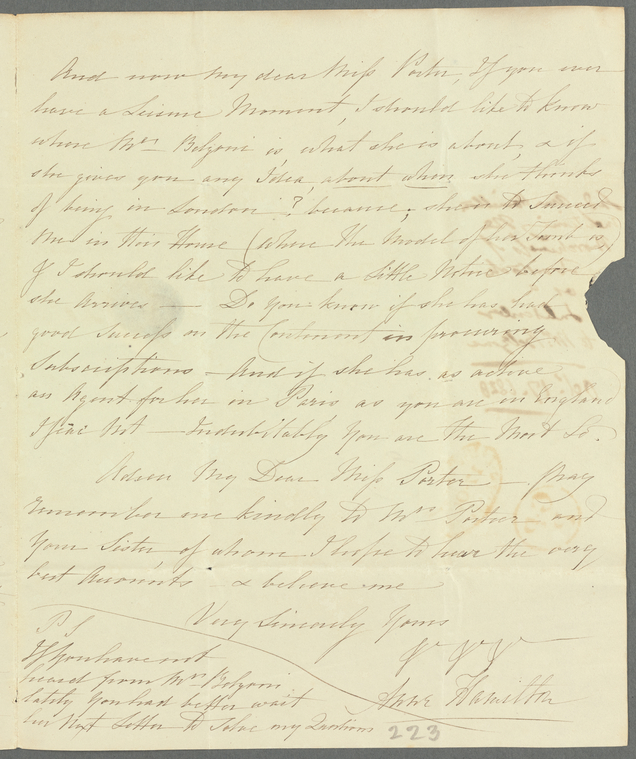 And now my dear Miss Porter, If you ever
have a Leisure Moment, I should like to know
where Mrs Belzoni is, what she is about, & if
she gives you any Idea, about when she thinks
of being in London? because, she is to succeed
me in this House (where the Model of her Tomb is)
& I should like to have a Little Notice before
she Arrives — Do You know if she has had
good Success on the Continent in procuring
Subscriptions — And if she has as active
an Agent for her in Paris as you are in England
I fear Not — Indubitably You are the Most So.
Adieu My Dear Miss Porter — Pray
remember me kindly to Mrs Porter and
Your Sister, of whom I hope to hear the very
best Accounts — & believe me
Very Sincerely Yours
Anne Hamilton
P.S
If You have not
heard from Mrs Belzoni
lately You had better wait
her Next Letter to Solve my Questions
223